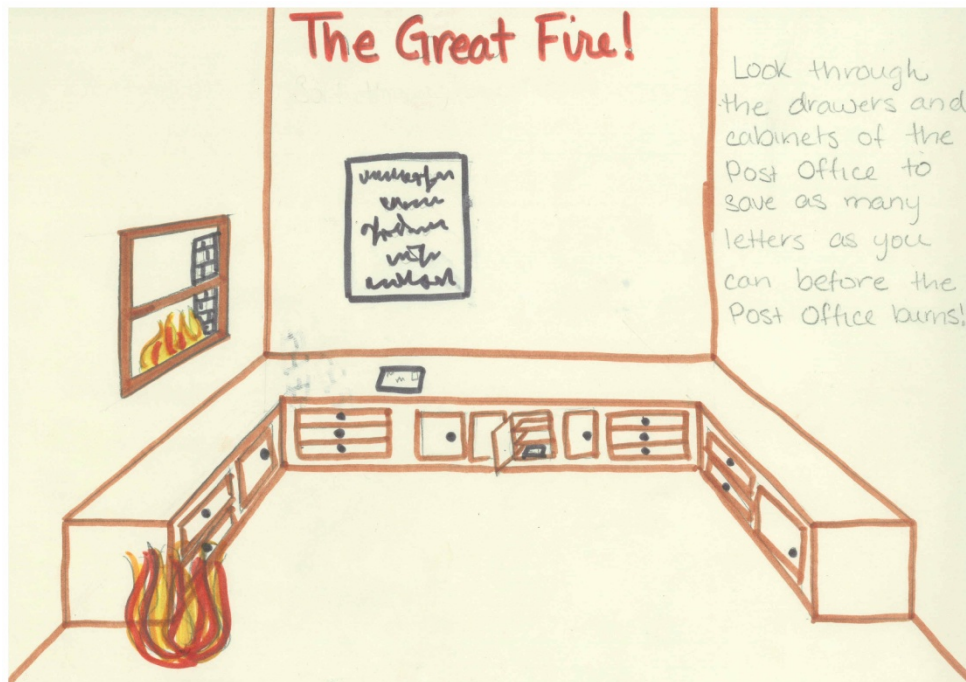 The Great Fire!
Look through
the drawers and
cabinets of the
Post Office to
save as many
letters as you
can before the
Post Office burns!